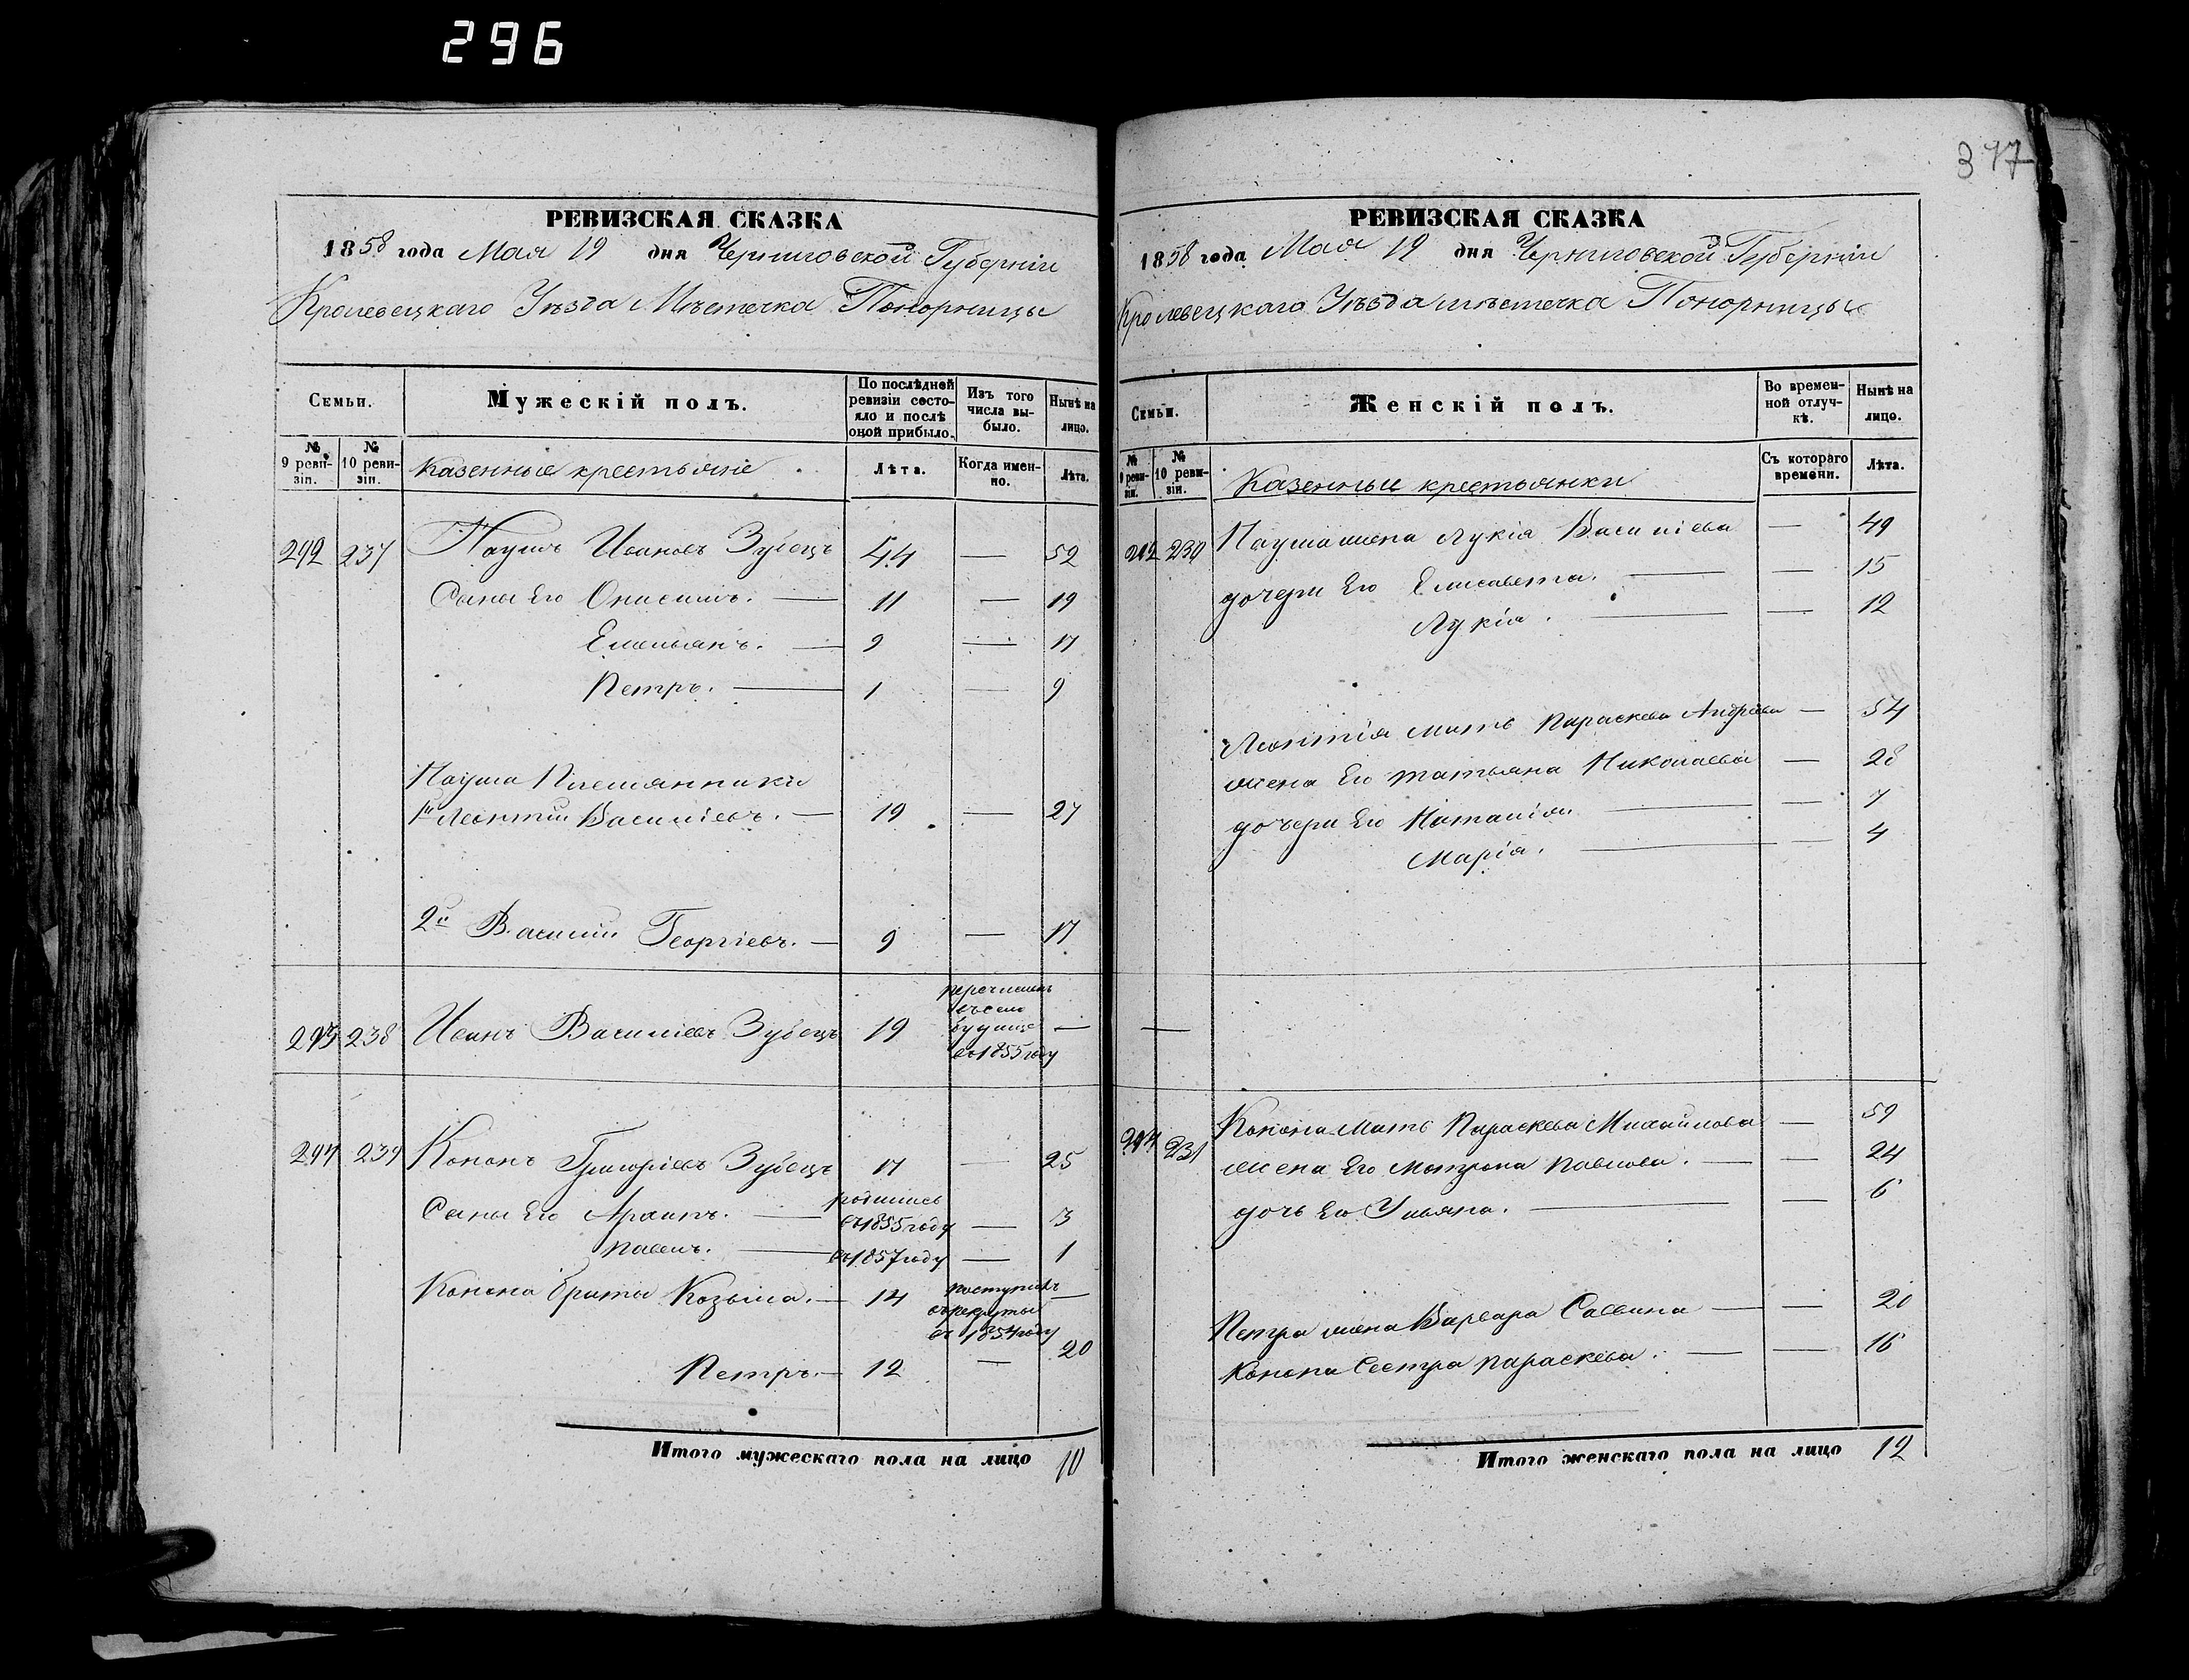 296
377
РЕВИЗСКАЯ СКАЗКА
1858 года Мая 19 дня Черниговской Губерніи
Кролевецкаго Уѣзда Мѣстечка Понорницы
Семьи.
Мужескій полъ.
По послѣдней ревизіи состояло и послѣ оной прибыло.
Изъ того числа выбыло.
Нынѣ на лицо.
№ 9 ревизіи.
№ 10 ревизіи.
Казенные крестьяне
Лѣта.
Когда именно.
Лѣта.
292 237 Наумъ Ивановъ Зубецъ 44 — 52
Сыны Его Онисимъ. — 11 — 19
Емельянъ. — 9 — 17
Петръ. — 1 — 9
Наума Племянники
1й Леонтій Василіевъ. — 19 — 27
2й Василій Георгіевъ. — 9 — 17
293 238 Иванъ Василіевъ Зубецъ 19 перечисленъ
въ село
будище
въ 1855 году —
294 239 Кононъ Григоріевъ Зубецъ 17 — 25
Сыны Его Архипъ. — родились
въ 1855 году — 3
Павелъ. — въ 1857 году — 1
Конона братья Козьма. — 14 поступилъ
въ рекруты
въ 1854 году —
Петръ. — 12 — 20
Итого мужескаго пола на лицо 10
РЕВИЗСКАЯ СКАЗКА
1858 года Мая 19 дня Черниговской Губерніи
Кролевецкаго Уѣзда мѣстечка Понорницы
Семьи.
Женскій полъ.
Во временной отлучкѣ.
Нынѣ на лицо.
№ 9 ревизіи.
№ 10 ревизіи.
Казенные крестьянки
Съ котораго времени.
Лѣта.
292 Наума жена Лукія Василіева — 49
дочери Его Елисавета. — — 15
Лукія. — — 12
Леонтія мать Параскева Андреева — 54
жена Его татьяна Николаева — 28
дочери Его Наталія. — — 7
Марія. — — 4
—
294 Конона мать Параскева Михайлова — 59
жена Его Матрона Павлова. — — 24
дочь Его Ульяна. — — 6
Петра жена Варвара Саввина — — 20
Конона Сестра параскева. — — 16
Итого женскаго пола на лицо 12